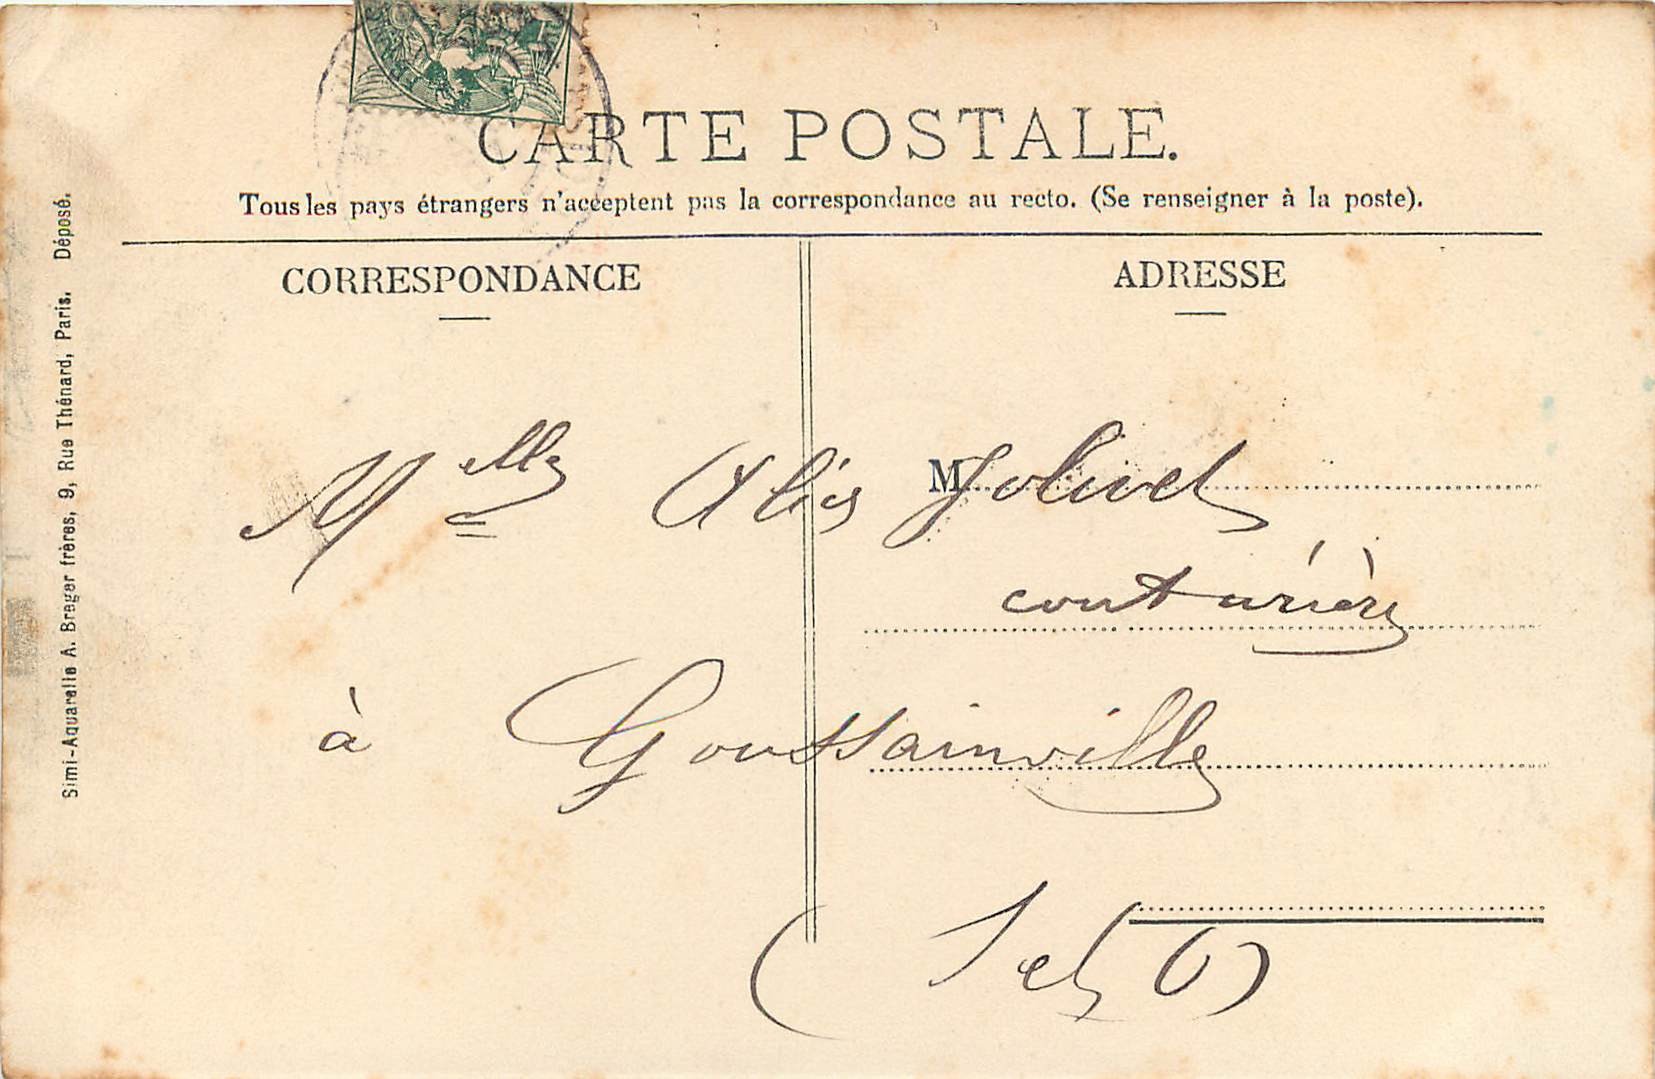 CARTE POSTALE.
Tous les pays étrangers n'acceptent pas la correspondance au recto. (Se renseigner à la poste).
CORRESPONDANCE
ADRESSE
Melle Alis M Jolivet
couturière
à Goussainville
(S et O)
Simi-Aquarelle A. Breger frères, 9, Rue Thénard, Paris. Déposé.